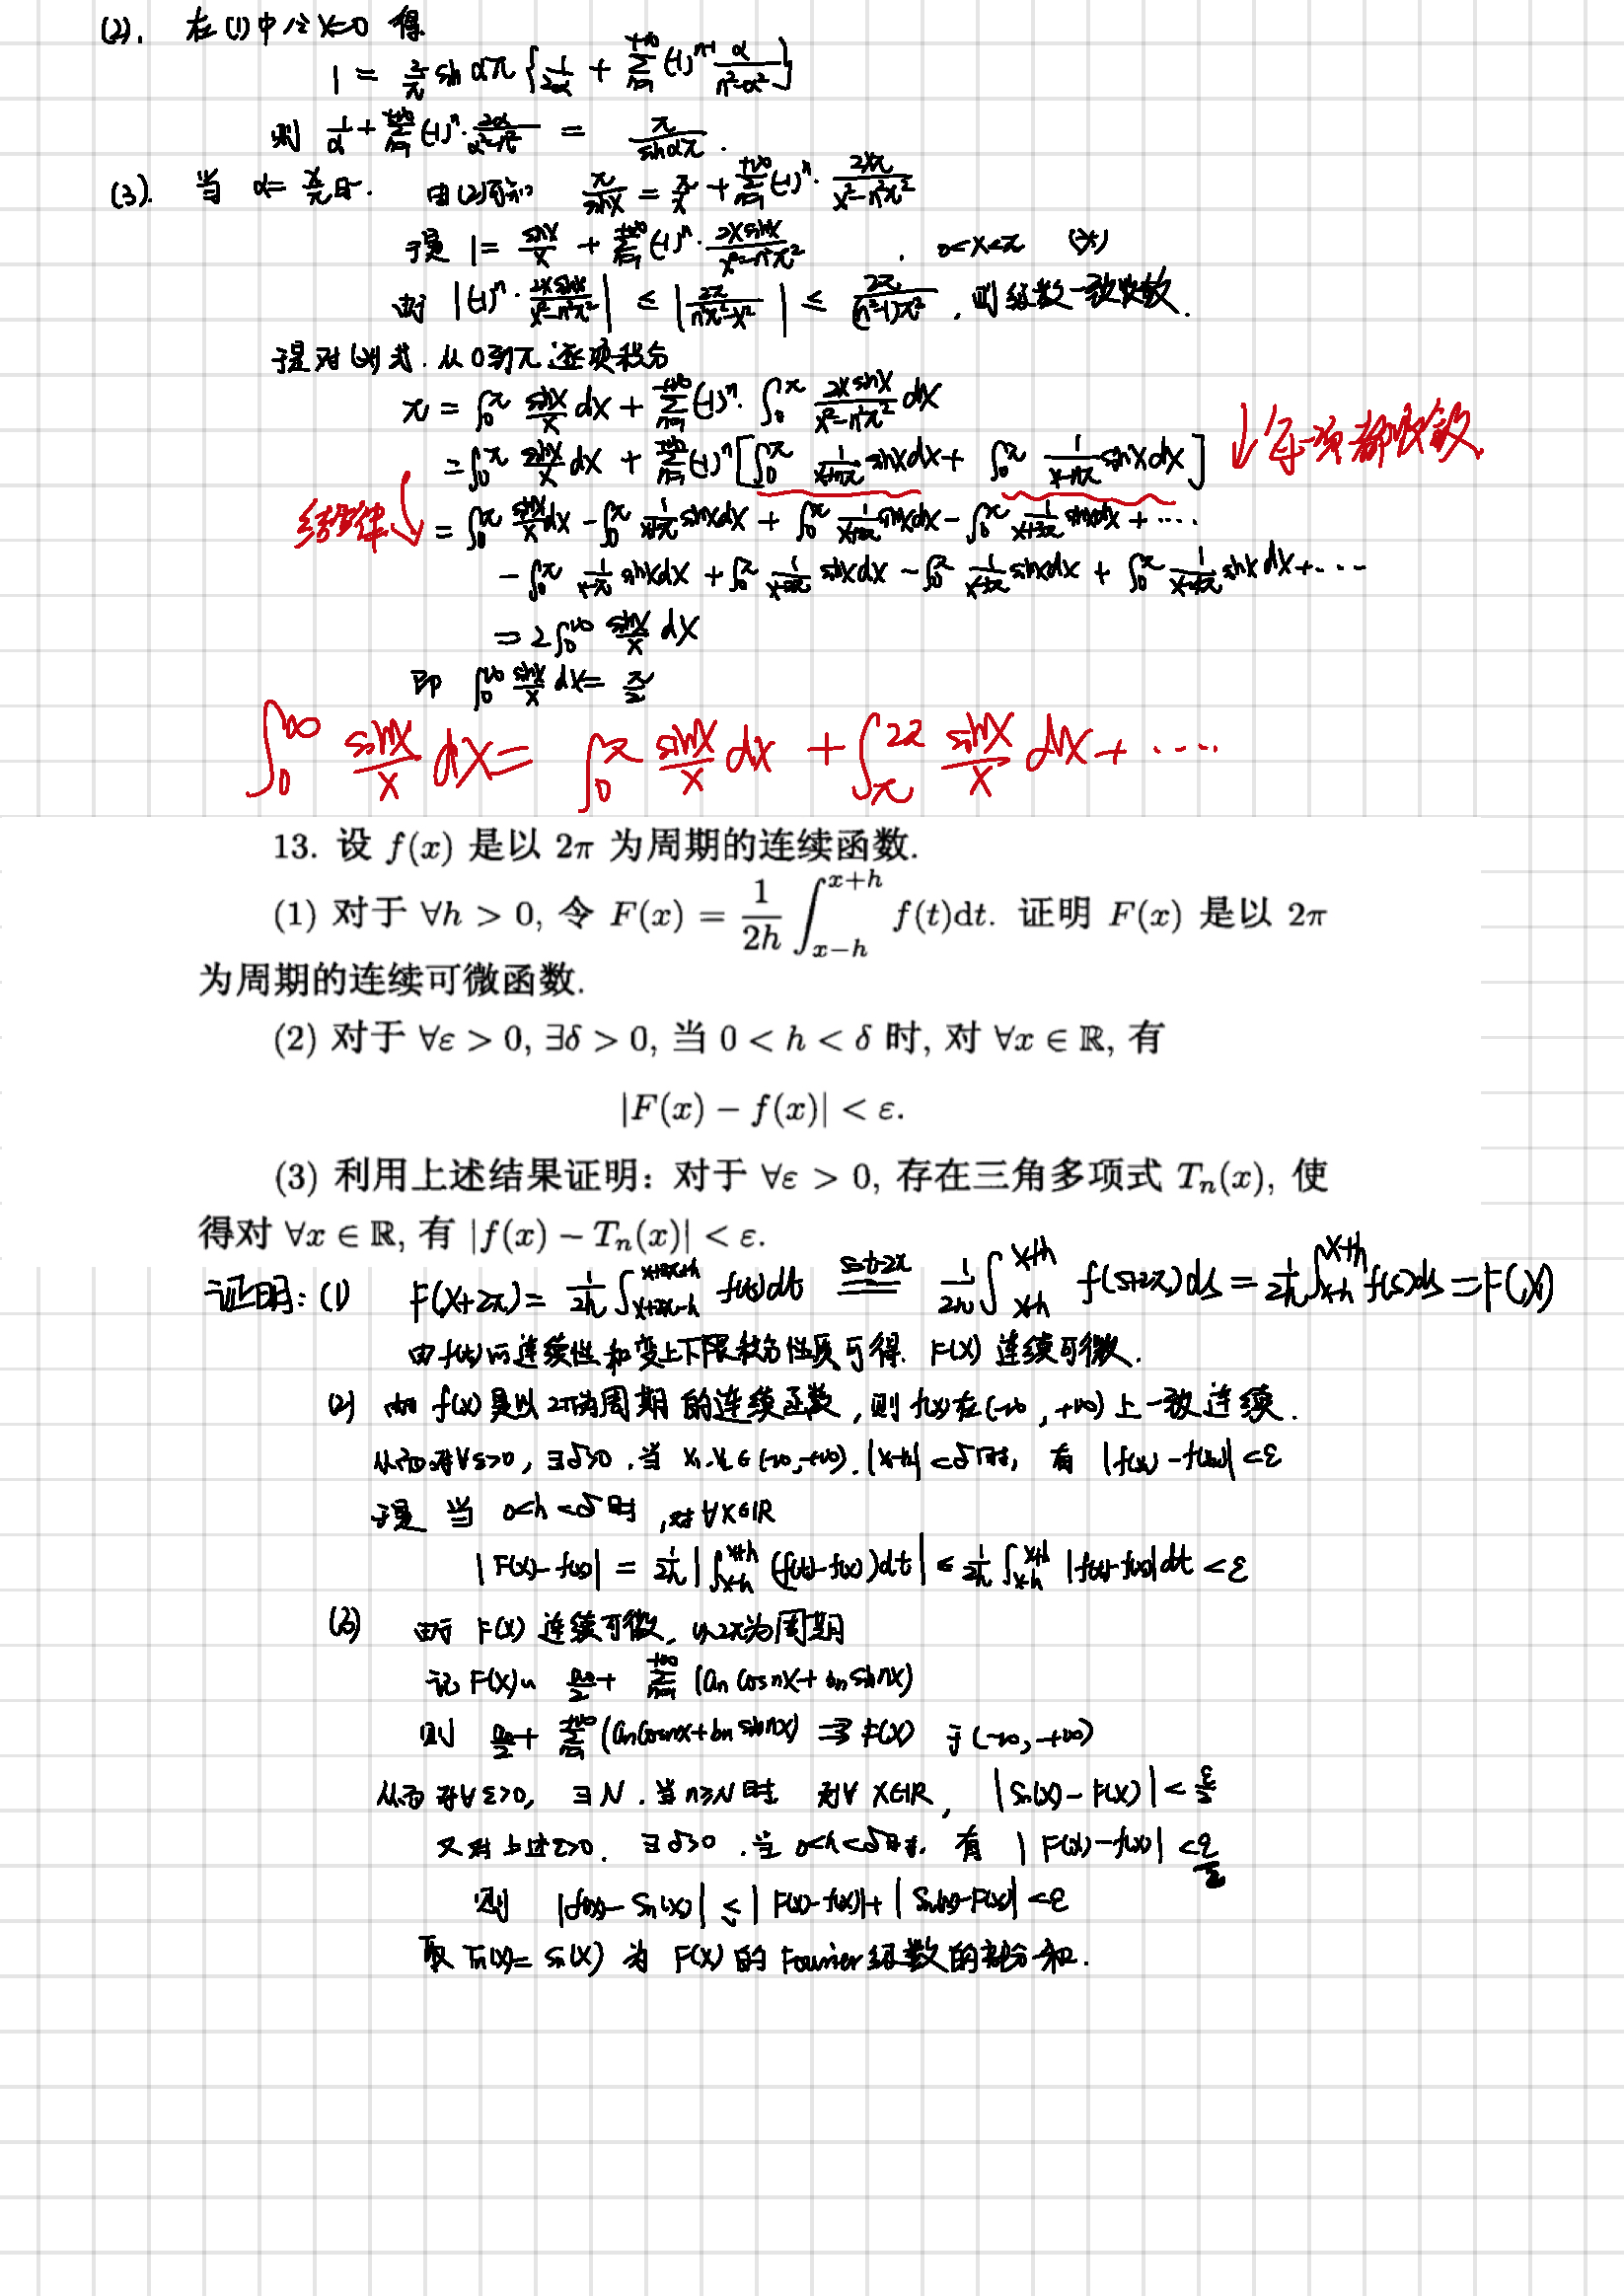 (2). 在(1)中令x=0 得
1 = 2/π sin απ { 1/2α + Σ_{n=1}^{+∞} (-1)^{n+1} α/(n²-α²) }
则 1/α + Σ_{n=1}^{+∞} (-1)^n · 2α/(α²-n²) = π/sin απ .
(3). 当 α= x/π 时. 由(2)可知 π/sinx = π/x + Σ_{n=1}^{+∞} (-1)^n · 2xπ/(x²-n²π²)
于是 1= sinx/x + Σ_{n=1}^{+∞} (-1)^n · 2x sinx/(x²-n²π²) , 0<x<π (*)
由于 |(-1)^n · 2x sinx/(x²-n²π²)| ≤ |2π/(n²π²-x²)| ≤ 2π/((n²-1)π²) , 则级数一致收敛.
于是对(*)式. 从0到π逐项积分
π = ∫_0^π sinx/x dx + Σ_{n=1}^{+∞} (-1)^n · ∫_0^π 2x sinx/(x²-n²π²) dx
= ∫_0^π sinx/x dx + Σ_{n=1}^{+∞} (-1)^n [ ∫_0^π 1/(x+nπ) sinx dx + ∫_0^π 1/(x-nπ) sinx dx ] ↓每一项都收敛
结合律↓ = ∫_0^π sinx/x dx - ∫_0^π 1/(x+π) sinx dx + ∫_0^π 1/(x+2π) sinx dx - ∫_0^π 1/(x+3π) sinx dx + ····
- ∫_0^π 1/(x-π) sinx dx + ∫_0^π 1/(x-2π) sinx dx - ∫_0^π 1/(x-3π) sinx dx + ∫_0^π 1/(x-4π) sinx dx + ····
= 2∫_0^∞ sinx/x dx
即 ∫_0^∞ sinx/x dx = π/2
∫_0^∞ sinx/x dx = ∫_0^π sinx/x dx + ∫_π^{2π} sinx/x dx + ····
13. 设 f(x) 是以 2π 为周期的连续函数.
(1) 对于 ∀h > 0, 令 F(x) = 1/2h ∫_{x-h}^{x+h} f(t)dt. 证明 F(x) 是以 2π
为周期的连续可微函数.
(2) 对于 ∀ε > 0, ∃δ > 0, 当 0 < h < δ 时, 对 ∀x ∈ ℝ, 有
|F(x) − f(x)| < ε.
(3) 利用上述结果证明: 对于 ∀ε > 0, 存在三角多项式 T_n(x), 使
得对 ∀x ∈ ℝ, 有 |f(x) − T_n(x)| < ε.
证明: (1) F(x+2π) = 1/2h ∫_{x+2π-h}^{x+2π+h} f(t)dt =(s=t-2π)= 1/2h ∫_{x-h}^{x+h} f(s+2π)ds = 1/2h ∫_{x-h}^{x+h} f(s)ds = F(x)
由f(t)的连续性和变上下限积分性质可得. F(x) 连续可微.
(2) 由于 f(x)是以 2π为周期 的连续函数, 则 f(x)在(-∞, +∞) 上一致连续.
从而对∀ε>0, ∃δ>0. 当 x₁,x₂∈(-∞,+∞). |x₁-x₂|<δ时, 有 |f(x₁)-f(x₂)|<ε
于是 当 0<h<δ 时, 对∀x∈ℝ
|F(x)-f(x)| = 1/2h |∫_{x-h}^{x+h} (f(t)-f(x))dt| ≤ 1/2h ∫_{x-h}^{x+h} |f(t)-f(x)|dt < ε
(3) 由于 F(x) 连续可微, 以2π为周期
记 F(x)~ a₀/2 + Σ_{n=1}^{+∞} (a_n cosnx + b_n sinnx)
则 a₀/2 + Σ_{n=1}^{+∞} (a_n cosnx + b_n sinnx) ⇉ F(x) 于(-∞, +∞)
从而 对∀ε>0, ∃N. 当n≥N时 对∀ x∈ℝ, |S_n(x)-F(x)| < ε/2
又对上述ε>0. ∃δ>0. 当 0<h<δ时. 有 |F(x)-f(x)| < ε/2
则 |f(x)-S_n(x)| ≤ |F(x)-f(x)| + |S_n(x)-F(x)| < ε
取 T_n(x)= S_n(x) 为 F(x) 的 Fourier级数的部分和.